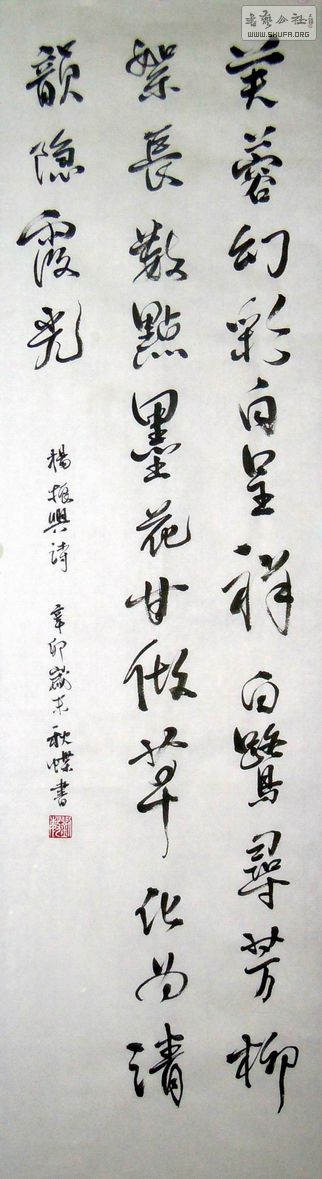 芙蓉幻彩白呈祥白鷺尋芳柳
絮長數點墨花甘做草化為清
韻隐霞光
楊振興诗 辛卯歲末秋蝶書
書藝公社
WWW.SHUFA.ORG